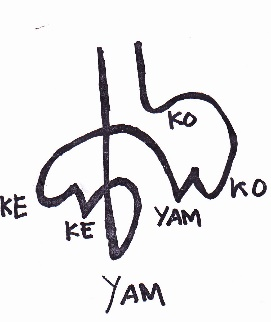 KO
KE KE YAM KO
YAM